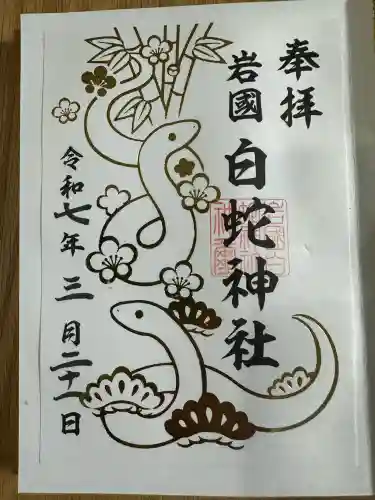 奉拝
岩國
白蛇神社
令和七年三月二十一日